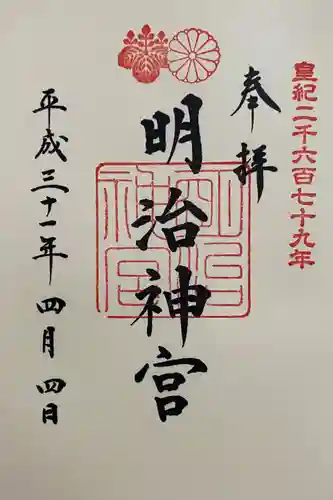 皇紀二千六百七十九年
奉拝
明治神宮
明治神宮
平成三十一年四月四日